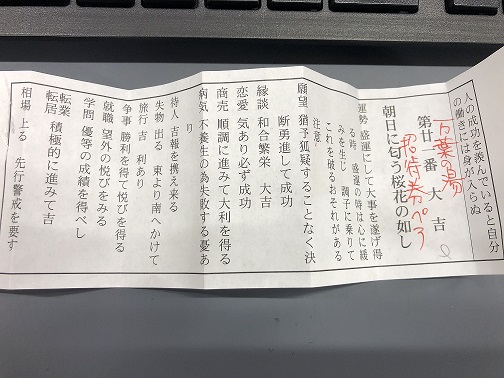 人の成功を羨んでいると自分
の働きには身が入らぬ
万葉の湯
招待券ペア
第廿一番 大吉
朝日に匂う桜花の如し
運勢 盛運にして大事を遂げ得
る時 盛運の時は心に緩
みを生じ 調子に乗りて
これを破るおそれがある
注意
願望 猶予狐疑することなく決
断勇進して成功
縁談 和合繁栄 大吉
恋愛 気あり必ず成功
商売 順調に進みて大利を得る
病気 不養生の為失敗する憂あ
り
待人 吉報を携え来る
失物 出る 東より南へかけて
旅行 吉 利あり
争事 勝利を得て悦びを得る
就職 望外の悦びをみる
学問 優等の成績を得べし
転業
転居 積極的に進みて吉
相場 上る 先行警戒を要す